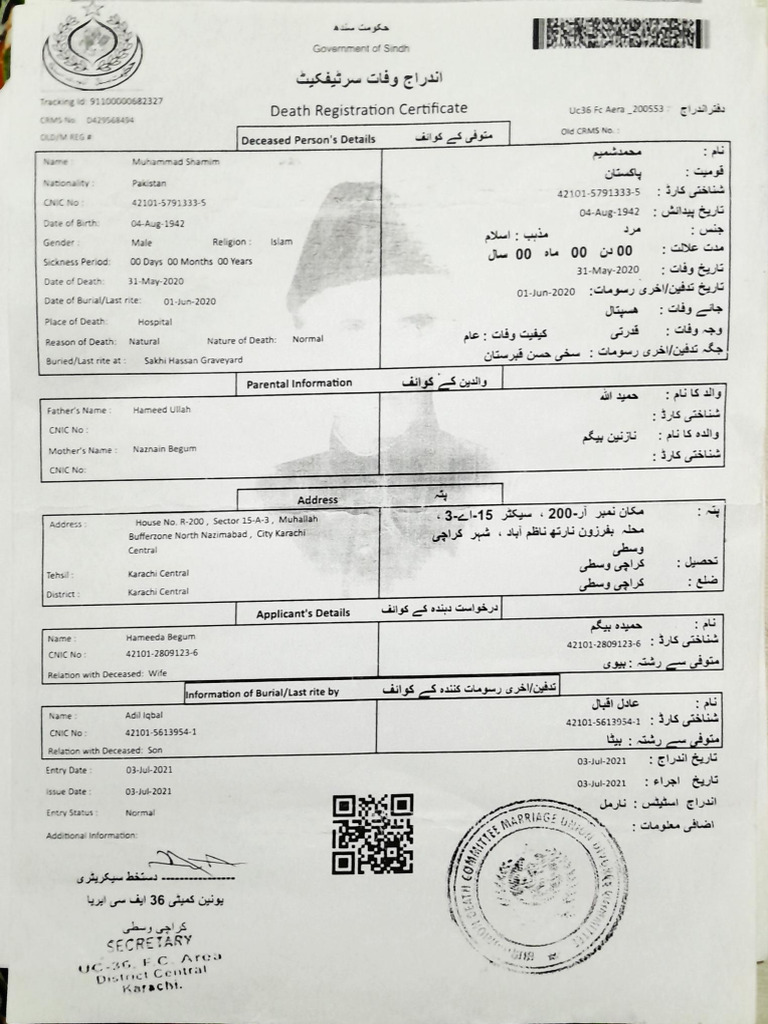 حکومت سندھ
Government of Sindh
اندراج وفات سرٹیفکیٹ
Death Registration Certificate
Tracking Id: 91100000682327
CRMS No: D429568494
OLD/M REG #:
Uc36 Fc Aera _200553 : دفتراندراج
Old CRMS No. :
Deceased Person's Details متوفی کے کوائف
Name : Muhammad Shamim
Nationality : Pakistan
CNIC No : 42101-5791333-5
Date of Birth: 04-Aug-1942
Gender : Male Religion : Islam
Sickness Period: 00 Days 00 Months 00 Years
Date of Death: 31-May-2020
Date of Burial/Last rite: 01-Jun-2020
Place of Death: Hospital
Reason of Death: Natural Nature of Death: Normal
Buried/Last rite at : Sakhi Hassan Graveyard
نام : محمدشمیم
قومیت : پاکستان
شناختی کارڈ : 42101-5791333-5
تاریخ پیدائش : 04-Aug-1942
جنس : مرد مذہب : اسلام
مدت علالت : 00 دن 00 ماہ 00 سال
تاریخ وفات : 31-May-2020
تاریخ تدفین/اخری رسومات: 01-Jun-2020
جائے وفات : ہسپتال
وجہ وفات : قدرتی کیفیت وفات : عام
جگہ تدفین/اخری رسومات : سخی حسن قبرستان
Parental Information والدین کے کوائف
Father's Name : Hameed Ullah
CNIC No :
Mother's Name : Naznain Begum
CNIC No:
والد کا نام : حمید اللہ
شناختی کارڈ :
والدہ کا نام : نازنین بیگم
شناختی کارڈ :
Address پتہ
Address : House No. R-200 , Sector 15-A-3 , Muhallah
Bufferzone North Nazimabad , City Karachi
Central
Tehsil : Karachi Central
District : Karachi Central
پتہ : مکان نمبر آر-200 ، سیکٹر 15-اے-3 ،
محلہ بفرزون نارتھ ناظم آباد ، شہر کراچی
وسطی
تحصیل : کراچی وسطی
ضلع : کراچی وسطی
Applicant's Details درخواست دہندہ کے کوائف
Name : Hameeda Begum
CNIC No : 42101-2809123-6
Relation with Deceased: Wife
نام : حمیدہ بیگم
شناختی کارڈ : 42101-2809123-6
متوفی سے رشتہ : بیوی
Information of Burial/Last rite by تدفین/اخری رسومات کنندہ کے کوائف
Name : Adil Iqbal
CNIC No : 42101-5613954-1
Relation with Deceased: Son
نام : عادل اقبال
شناختی کارڈ : 42101-5613954-1
متوفی سے رشتہ : بیٹا
Entry Date : 03-Jul-2021
Issue Date : 03-Jul-2021
Entry Status : Normal
Additional Information:
تاریخ اندراج : 03-Jul-2021
تاریخ اجراء : 03-Jul-2021
اندراج اسٹیٹس : نارمل
اضافی معلومات :
دستخط سیکریٹری
یونین کمیٹی 36 ایف سی ایریا
کراچی وسطی
SECRETARY
UC-36, F.C. Area
District Central
Karachi.
DEATH COMMITTEE MARRIAGE UNION DIVORCE COMMITTEE